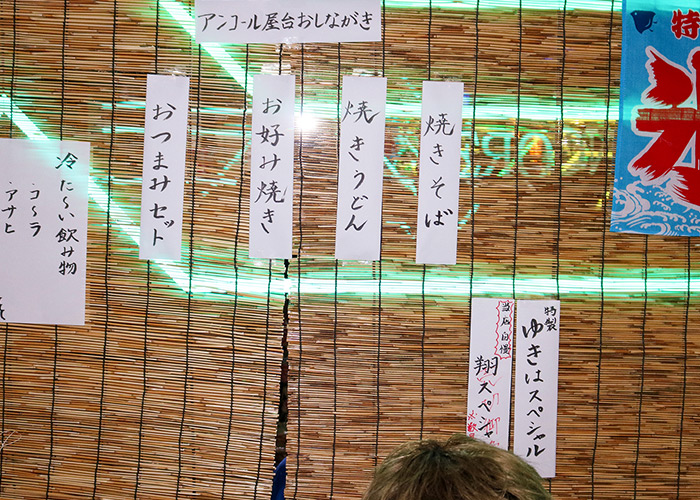 アンコール屋台おしながき
特
氷
焼きそば
焼きうどん
お好み焼き
おつまみセット
冷た〜い飲み物
・コーラ
・アサヒ
特製
ゆきはスペシャル
当店自慢
翔スペシャ